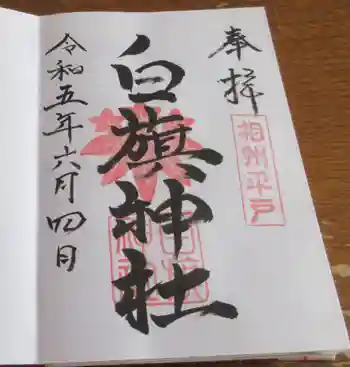 奉拝
相州平戸
白旗神社
白旗神社
令和五年六月四日